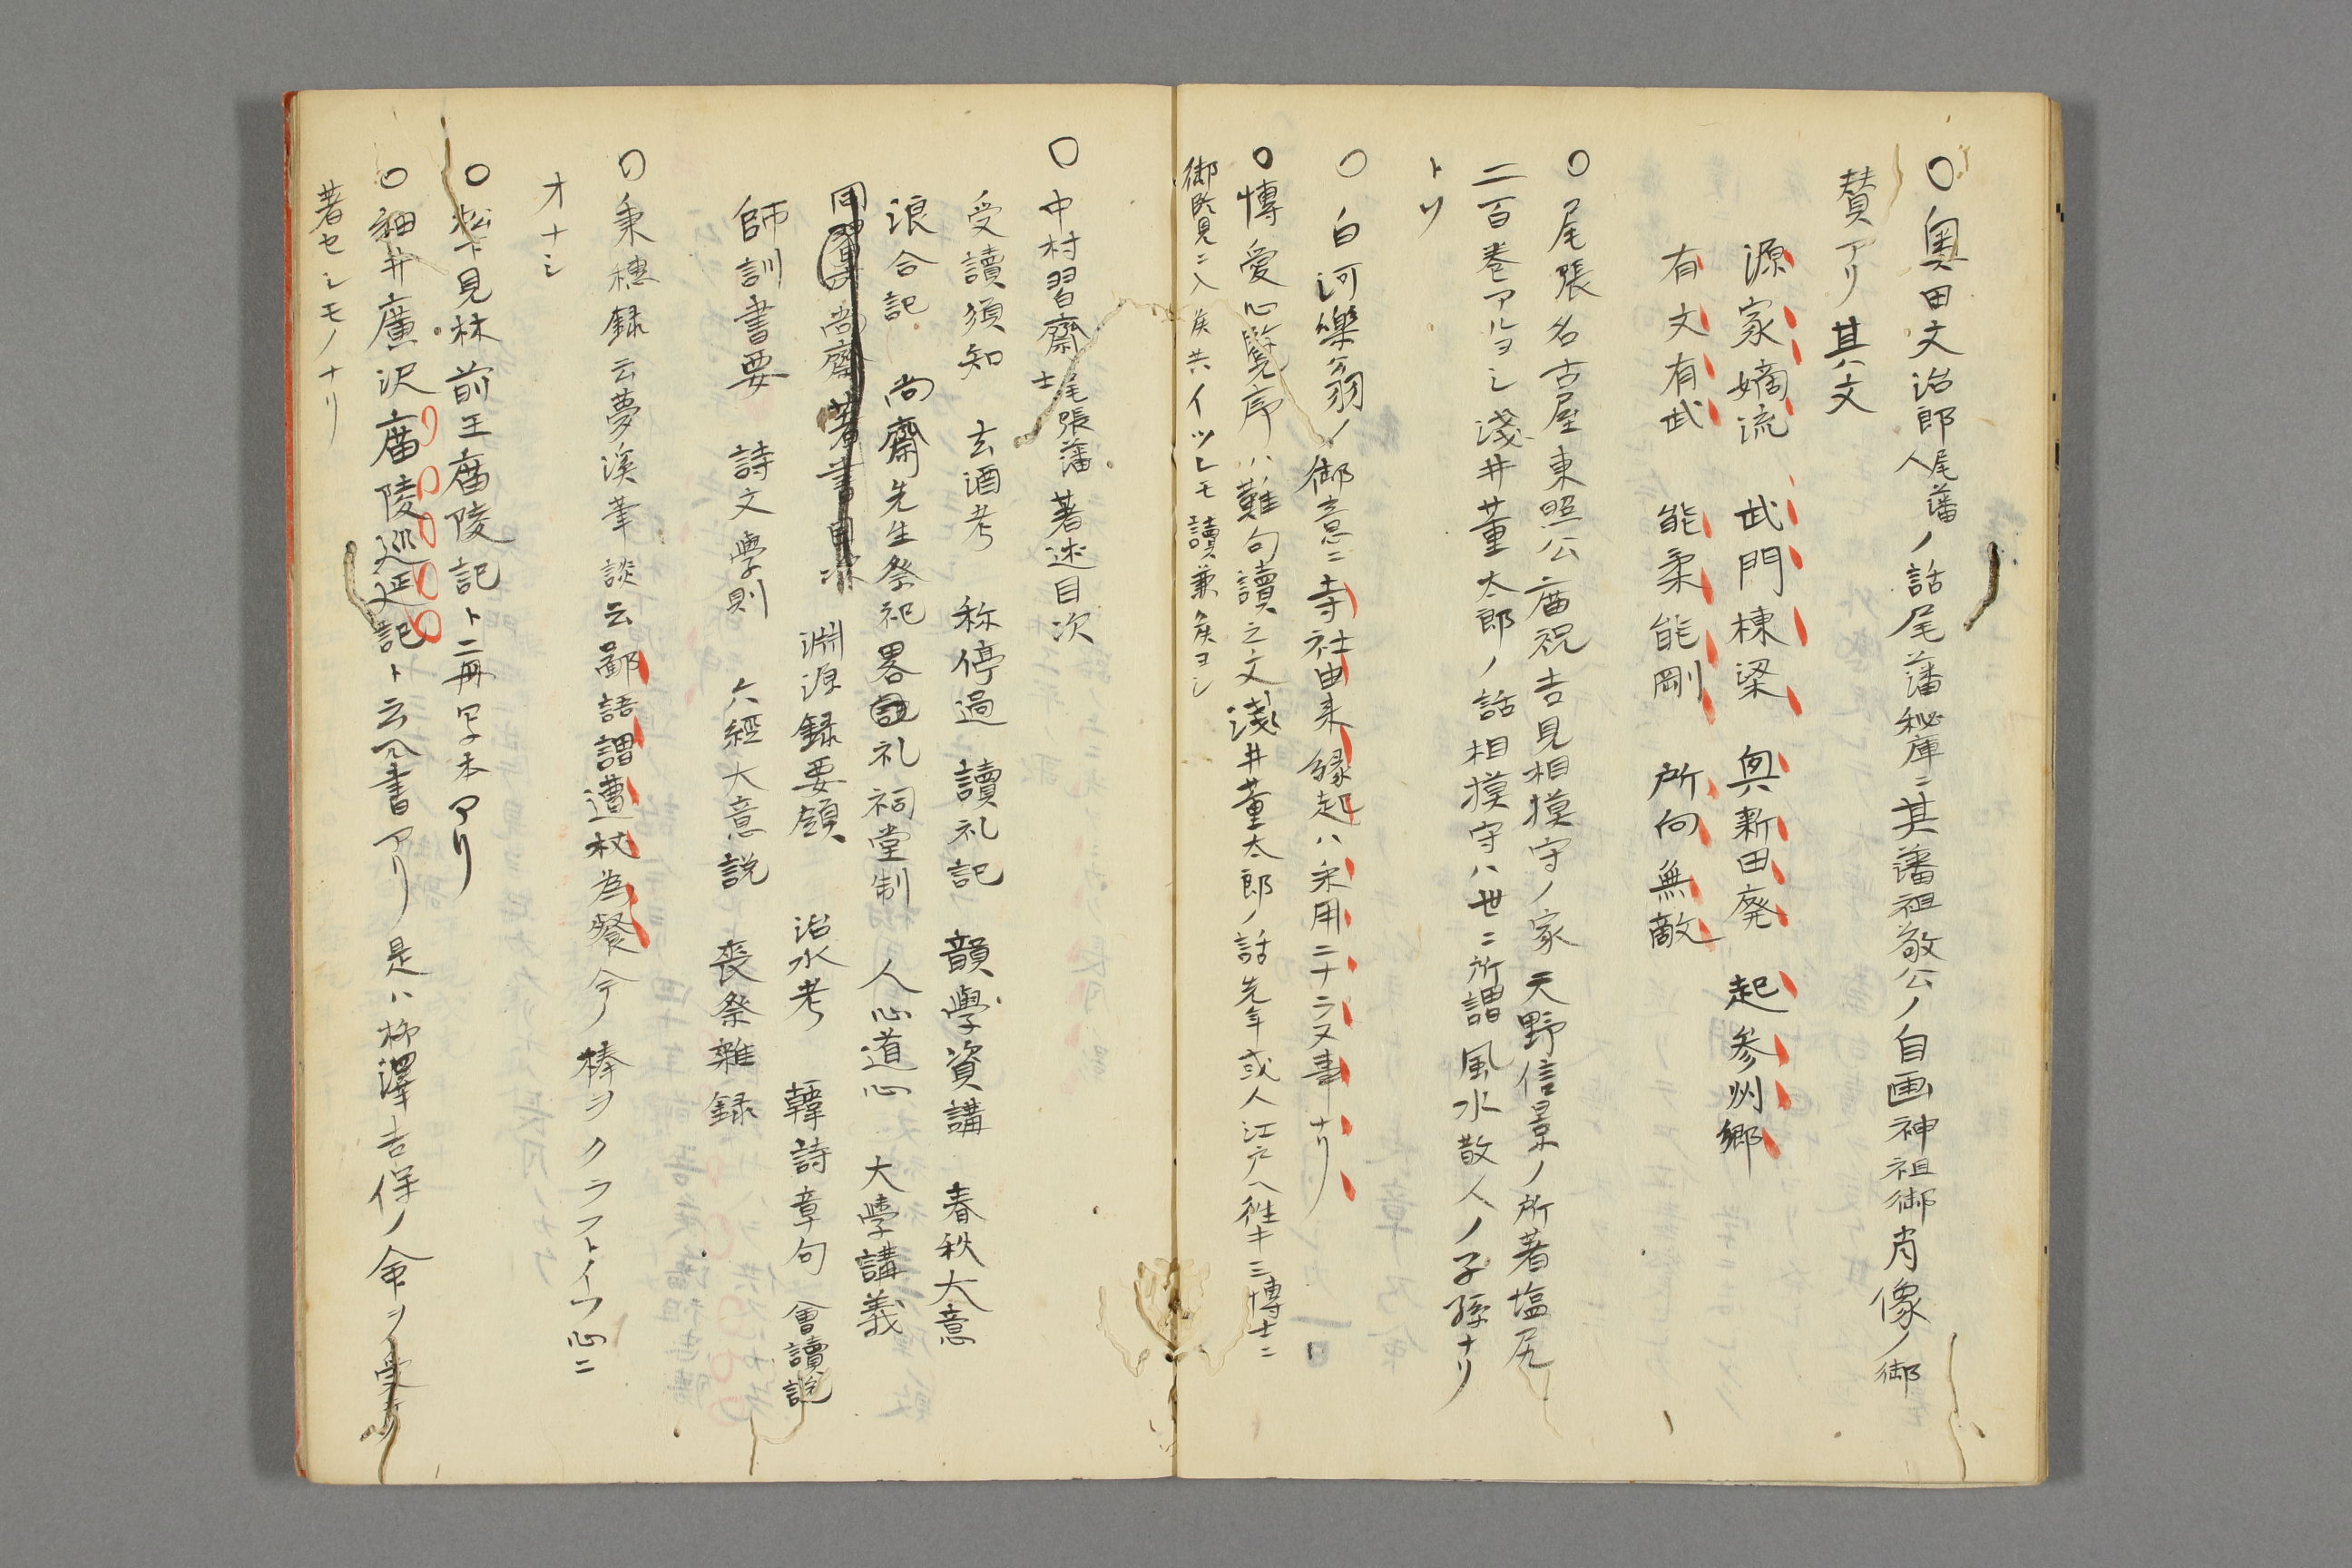 〇奥田文治郎尾藩人ノ話尾藩秘庫ニ其藩祖敬公ノ自画神祖御肖像ノ御
賛アリ其文
源家嫡流 武門棟梁 興新田廃 起参州郷
有文有武 能柔能剛 所向無敵
〇尾張名古屋東照公廟祝吉見相摸守ノ家天野信景ノ所著塩尻
二百巻アルヨシ淺井董太郎ノ話相摸守ハ世ニ所謂風水散人ノ子孫ナリ
トソ
〇白河樂翁ノ御意ニ寺社由来縁起ハ采用ニナラヌ事ナリ
〇博愛心鑒序ハ難句讀之文淺井董太郎ノ話先年或人江戸ヘ徃キ三博士ニ
御覧ニ入候共イツレモ讀兼候ヨシ
〇中村習齋尾張藩士著述目次
受讀須知 玄酒考 称停過 讀礼記 韻學資講 春秋大意
浪合記 尚齋先生祭祀畧記礼祠堂制 人心道心 大學講義
淵源録要領 治水考 韓詩章句 會讀説
師訓書要 詩文學則 六經大意説 喪祭雜録
〇秉穂録云夢溪筆談云鄙語謂遭杖為餐今ノ棒ヲクラフトイフ心ニ
オナシ
〇松下見林前王廟陵記ト二冊写本アリ
〇細井廣沢廟陵記ト云フ書アリ是ハ柳澤吉保ノ命ヲ受
著セシモノナリ